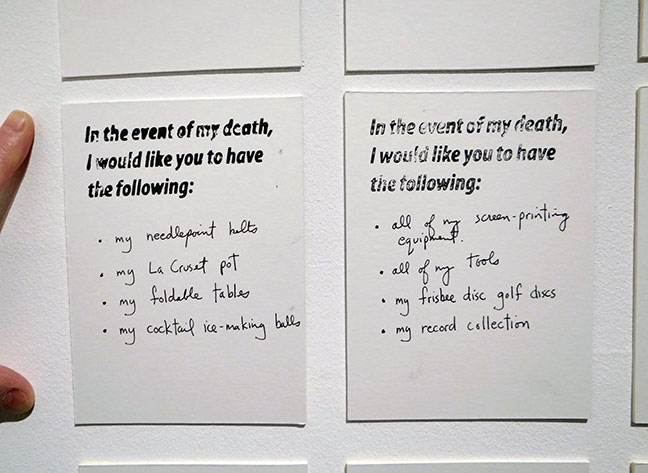 In the event of my death,
I would like you to have
the following:
• my needlepoint belts
• my La Cruset pot
• my foldable tables
• my cocktail ice-making balls
In the event of my death,
I would like you to have
the following:
• all of my screen-printing
equipment.
• all of my tools
• my frisbee disc golf discs
• my record collection